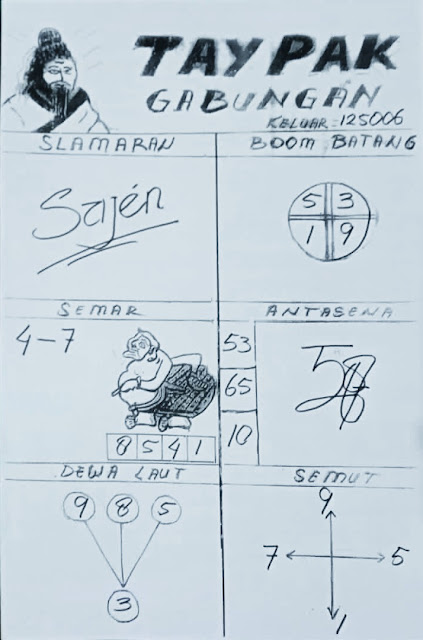 TAYPAK
GABUNGAN
KELUAR = 125006
SLAMARAN
BOOM BATANG
Sajén
5 3
1 9
SEMAR
ANTASENA
4-7
53
65
10
8 5 4 1
DEWA LAUT
SEMUT
9 8 5
3
9
7 5
1